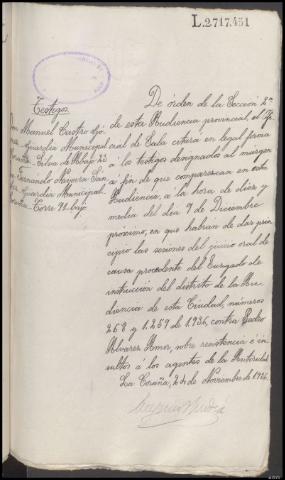 L.2717,451
Testigos
Don Manuel Castro
Guardia Municipal
Silva de Abajo 23
Fernando Noguera
Guardia Municipal
Torre 91 bajo
De órden de la Sección 2ª
de esta Audiencia provincial, el Ofi
cial de Sala citará en legal forma
á los testigos designados al márgen
á fin de que comparezcan en esta
Audiencia, á la hora de diez y
media del día 9 de Diciembre
próximo, en que habrán de dar prin
cipio las sesiones del juicio oral de
causa procedente del Juzgado de
instrucción del distrito de la Au
diencia de esta Ciudad, números
268 y 1.259 de 1926, contra Pedro
Alvarez Amor, sobre resistencia é in
sultos á los agentes de la Autoridad
La Coruña, 24 de Noviembre de 1926.